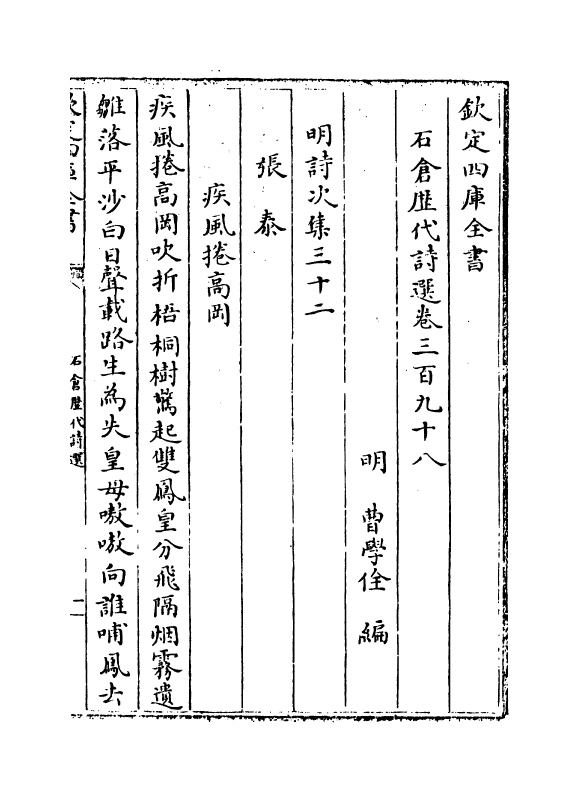 欽定四庫全書
石倉歷代詩選卷三百九十八
明 曹學佺 編
明詩次集三十二
張泰
疾風捲高岡
疾風捲高岡吹折梧桐樹驚起雙鳳皇分飛隔烟霧遺
雛落平沙白日聲載路生為失皇母嗷嗷向誰哺鳳去
欽定四庫全書
石倉歷代詩選